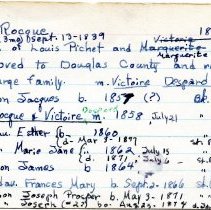 Rocque Victoire 18
3 mo) Sept. 13-1839 Marguerite
of Louis Pichet and Marguerite
oved to Douglas County and r
arge family. m. Victoire Despard
on Jacques b. 1857 (?) Bk.
ocque & Victoire m. 1858 July 21
au. Esther b. 1860
d. Mar 3-1877
" Marie Jane b. 1862 July 15
d. 1871
on James b. 1864
dau. Frances Mary b. Sept. 2-1866 St.
on Joseph Prosper b. May 3-1871
" Joseph (#2?) b. 1874